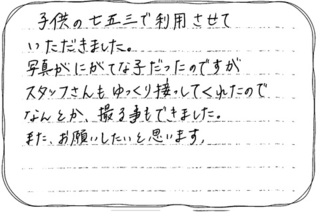 子供の七五三で利用させて
いただきました。
写真がにがてな子だったのですが
スタッフさんもゆっくり接っしてくれたので
なんとか、撮る事もできました。
また、お願いしたいと思います。